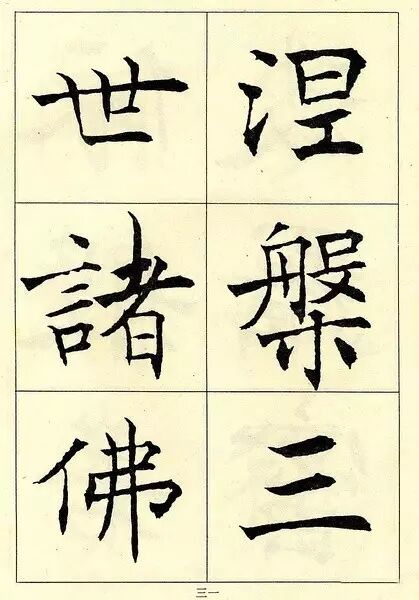 涅槃三
世諸佛
三一